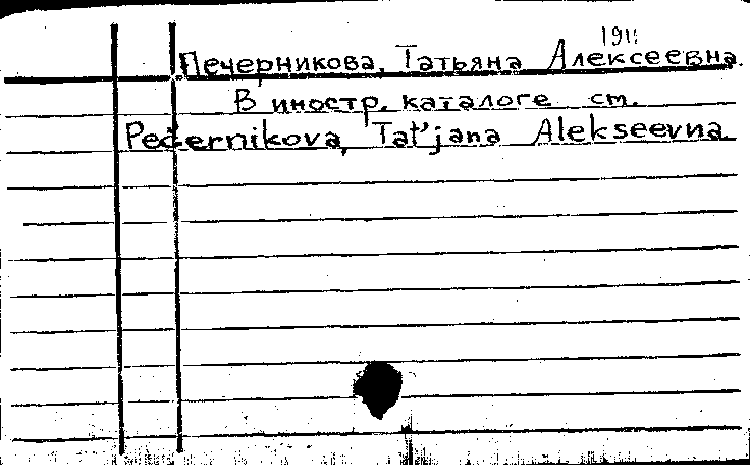 Печерникова, Татьяна Алексеевна.
В иностр. каталоге см.
Pečernikova, Tat'jana Alekseevna